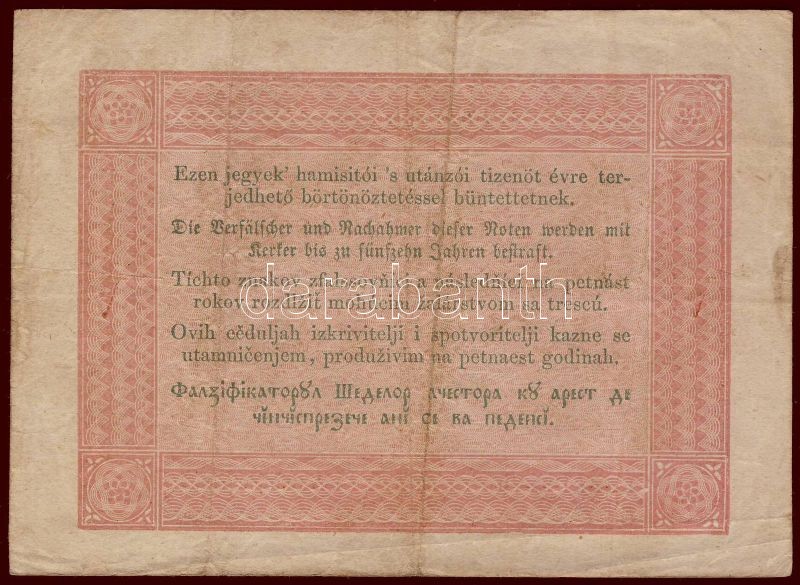 Ezen jegyek' hamisitói 's utánzói tizenöt évre ter-
jedhető börtönöztetéssel büntettetnek.
Die Verfälscher und Nachahmer dieser Noten werden mit
Kerker bis zu fünfzehn Jahren bestraft.
Tíchto znakov zfalšovňíci a následníci na petnást
rokov rozdĺžiť mohúcim žalárstvom sa trescú.
darabanth
Ovih cěduljah izkrivitelji i spotvoritelji kazne se
utamničenjem, produživim na petnaest godinah.
Фалʒіфікаторꙋл Шеделор ачестора кꙋ арест де
чінчіспреʒече ані се ва педепсі.